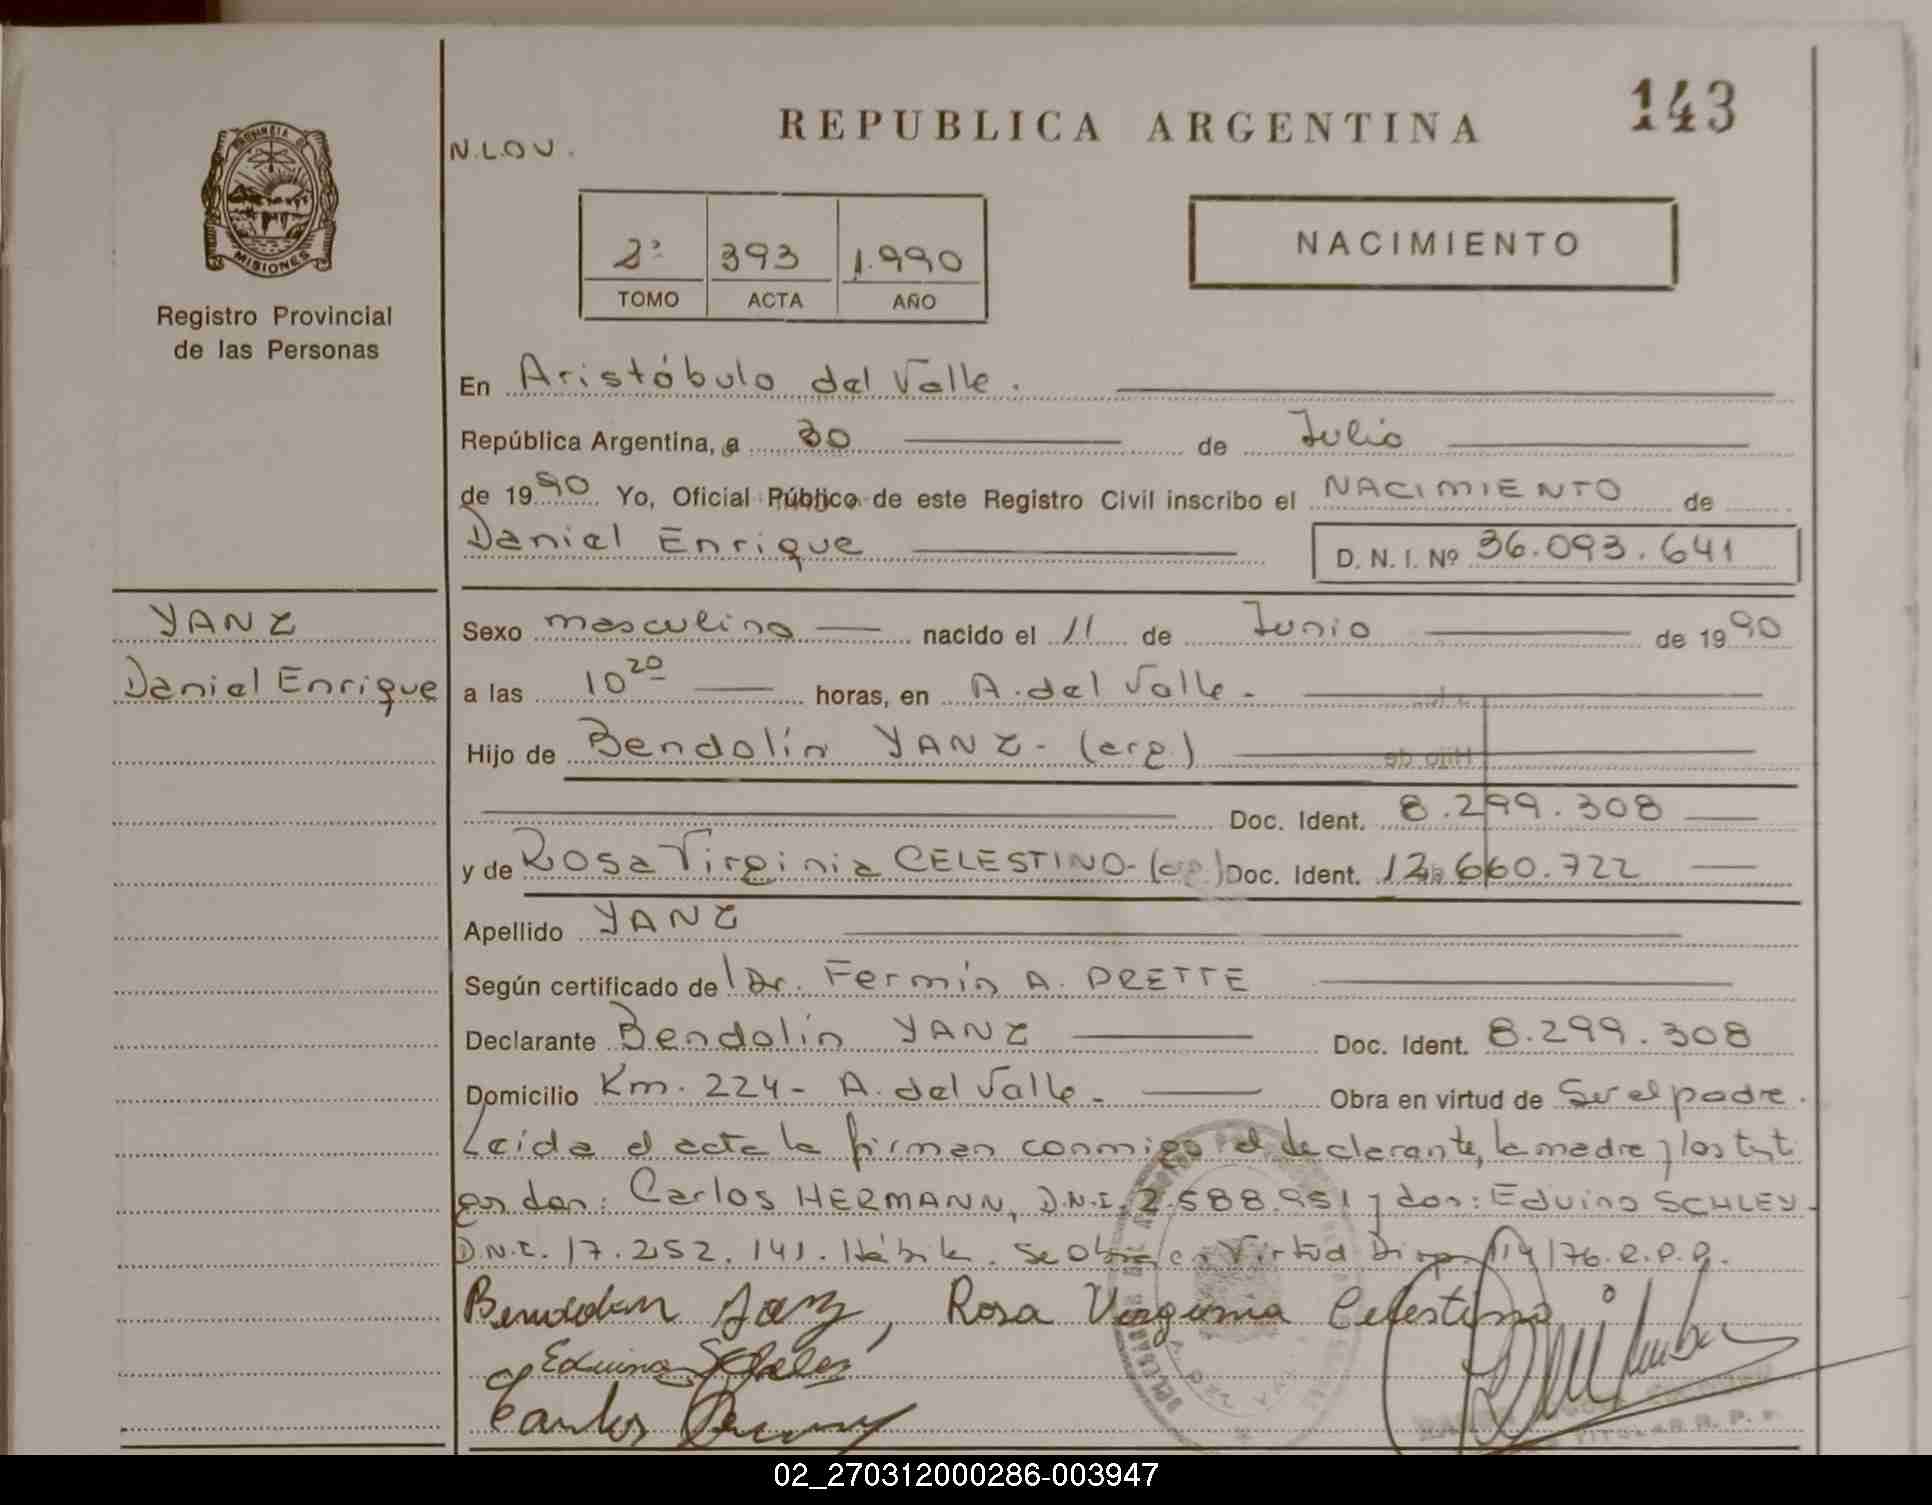 143
REPUBLICA ARGENTINA
N.L.O.V.
PROVINCIA DE
MISIONES
Registro Provincial
de las Personas
2º 393 1.990
TOMO ACTA AÑO
NACIMIENTO
En Aristóbulo del Valle.
República Argentina, a 30 de Julio
de 1990 Yo, Oficial Público de este Registro Civil inscribo el NACIMIENTO de
Daniel Enrique D. N. I. Nº 36.093.641
YANZ
Daniel Enrique
Sexo masculino nacido el 11 de Junio de 1990
a las 10 20 horas, en A. del Valle.
Hijo de Bendolín YANZ - (arg.)
Doc. Ident. 8.299.308
y de Rosa Virginia CELESTINO - (arg.) Doc. Ident. 12.660.722
Apellido YANZ
Según certificado de Dr. Fermín A. DRETTE
Declarante Bendolín YANZ Doc. Ident. 8.299.308
Domicilio Km. 224 - A. del Valle. Obra en virtud de Ser el padre.
Leida el acta la firman conmigo el declarante, la madre y los test
gos don: Carlos HERMANN, D.N.I. 2.588.951 y don: Eduino SCHLEY.
D.N.I. 17.252.141. Hábiles. Se Obra en Virtud Disp. 114/76. R.P.P.
Rosa Virginia Celestino
Eduino
Carlos
TITULAR R. P. P.
02_270312000286-003947